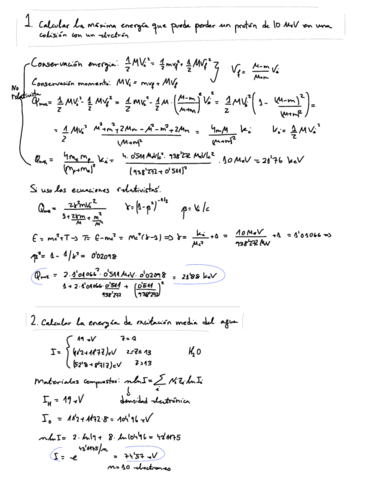 1. Calcular la máxima energía que puede perder un protón de 10 MeV en una
colisión con un electrón
No relativista
Conservación energía: 1/2 MV₀² = 1/2 mv² + 1/2 MVf²
Vf = (M-m)/(M+m) V₀
Conservación momento: MV₀ = mv + MVf
Qmax = 1/2 MV₀² - 1/2 MVf² = 1/2 MV₀² - 1/2 M · ((M-m)/(M+m))² V₀² = 1/2 MV₀² (1 - (M-m)²/(M+m)²) =
= 1/2 MV₀² (M²+m²+2Mm-M²-m²+2Mm)/(M+m)² = 4mM/(M+m)² Ki  Ki = 1/2 MV₀²
Qmax = 4mM/(M+m)² Ki = 4·0'511 MeV/c² · 938'272 MeV/c² / (938'272 + 0'511)² · 10 MeV = 21'76 keV
Si uso las ecuaciones relativistas.
γ = (1-β²)^(-1/2)  β = V₀/c
E = mc² + T → T = E - mc² = mc²(γ-1) ⇒ γ = Ki/Mc² + 1 = 10 MeV/938'272 MeV + 1 = 1'01066 ⇒
β² = 1 - 1/γ² = 0'02098
Qmax = 2·1'01066²·0'511 MeV·0'02098 / (1 + 2·1'01066 0'511/938'272 + (0'511/938'272)²) = 21'88 keV
2. Calcular la energía de excitación media del agua
I = 19 eV  Z=1
(11'2+11'7Z) eV  2≤Z≤13
(52'8+8'71Z) eV  Z>13
H₂O
Materiales compuestos: n ln I = Σ Ni Zi ln Ii
densidad electrónica
I_H = 19 eV
I_O = 11'2 + 11'7·8 = 104'96 eV
n ln I = 2·ln 19 + 8·ln 104'96 = 43'1175
I = e^(43'1175/n) = 74'57 eV
n = 10 electrones